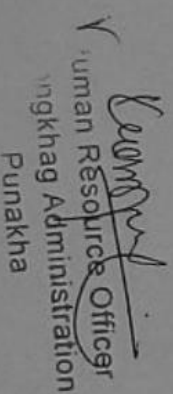 uman Resource Officer
ngkhag Administration
Punakha